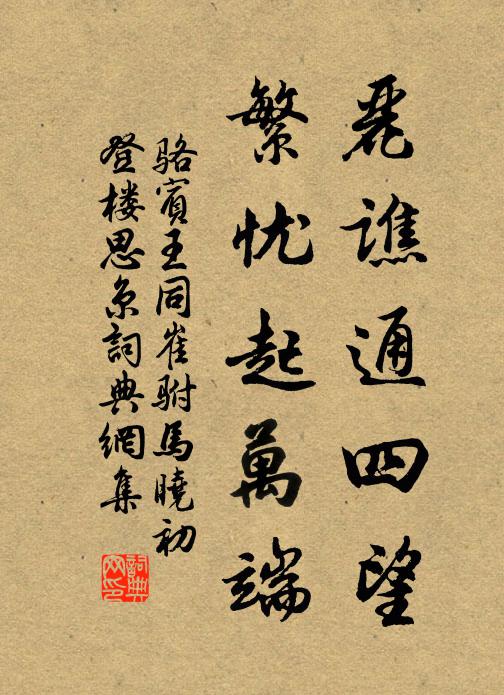 麗譙通四望
繁忧起萬端
駱賓王同崔駙馬曉初
登楼思京詞典網集
詞典
网印